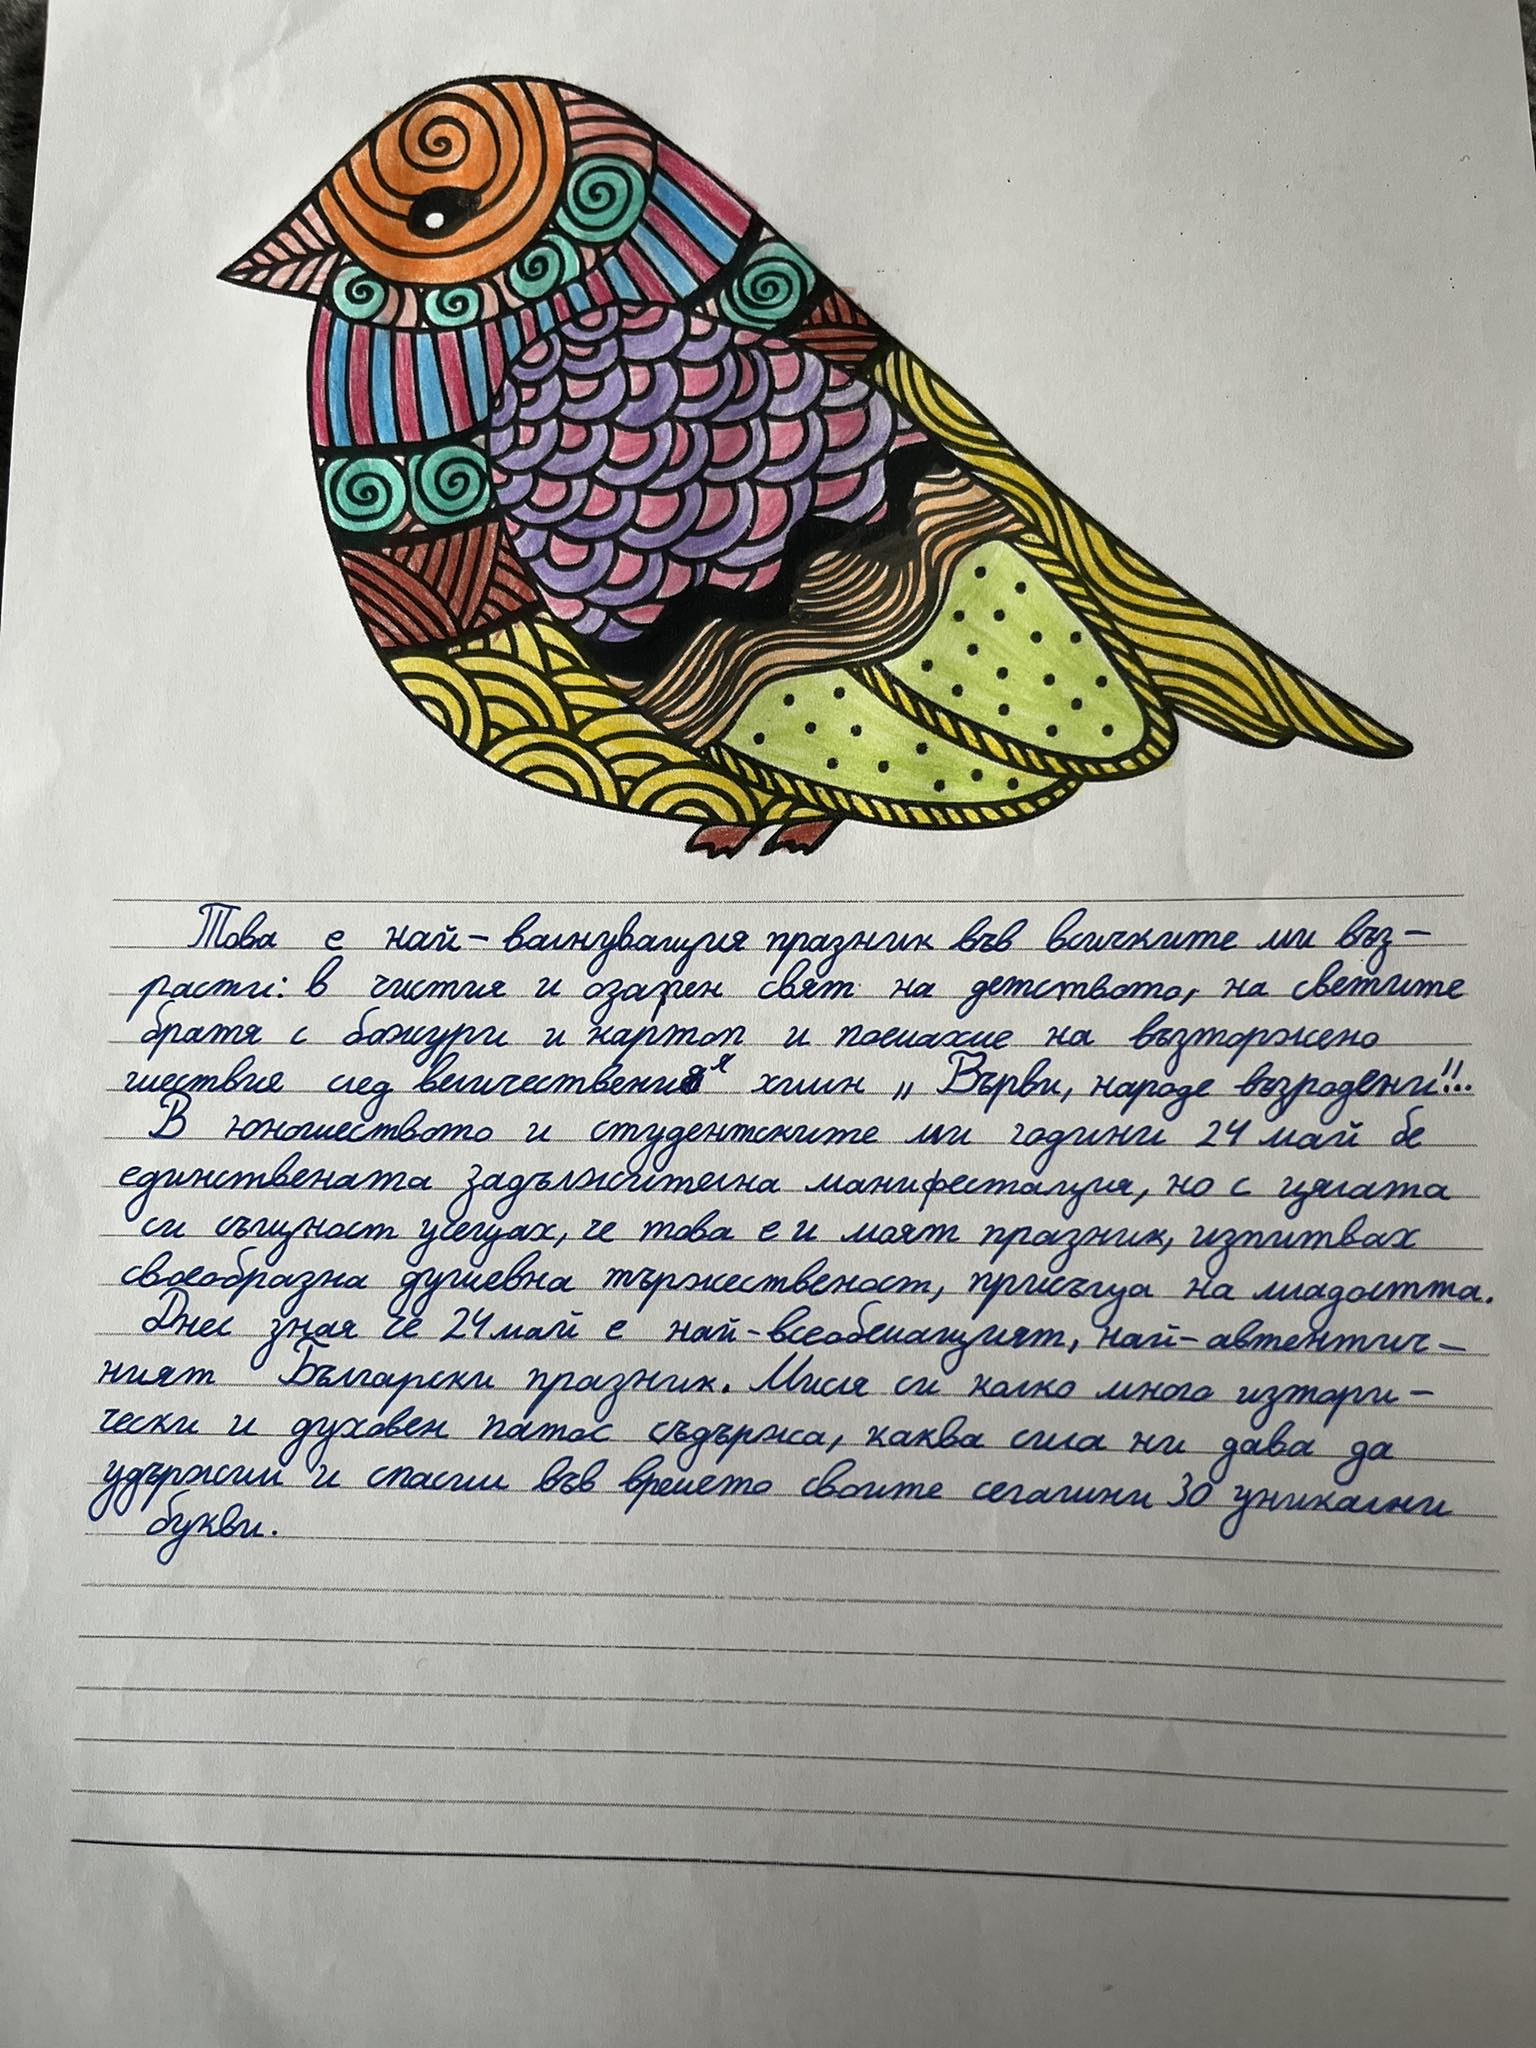 Това е най-вълнуващия празник във всичките ми въз-
расти: в чистия и озарен свят на детството, на светлите
братя с божури и картоп и помахме на възторжено
шествие след величествения химн „Върви, народе възродени"!..
В юношеството и студентските ми години 24 май бе
единствената задължителна манифестация, но с цялата
си същност усещах, че това е и моят празник, изпитвах
своеобразна душевна тържественост, присъща на младостта.
Днес зная че 24 май е най-всеобемащият, най-автентич-
ният Български празник. Мисля си колко много изтори-
чески и духовен патос съдържа, каква сила ни дава да
удържим и спасим във времето своите сегашни 30 уникални
букви.